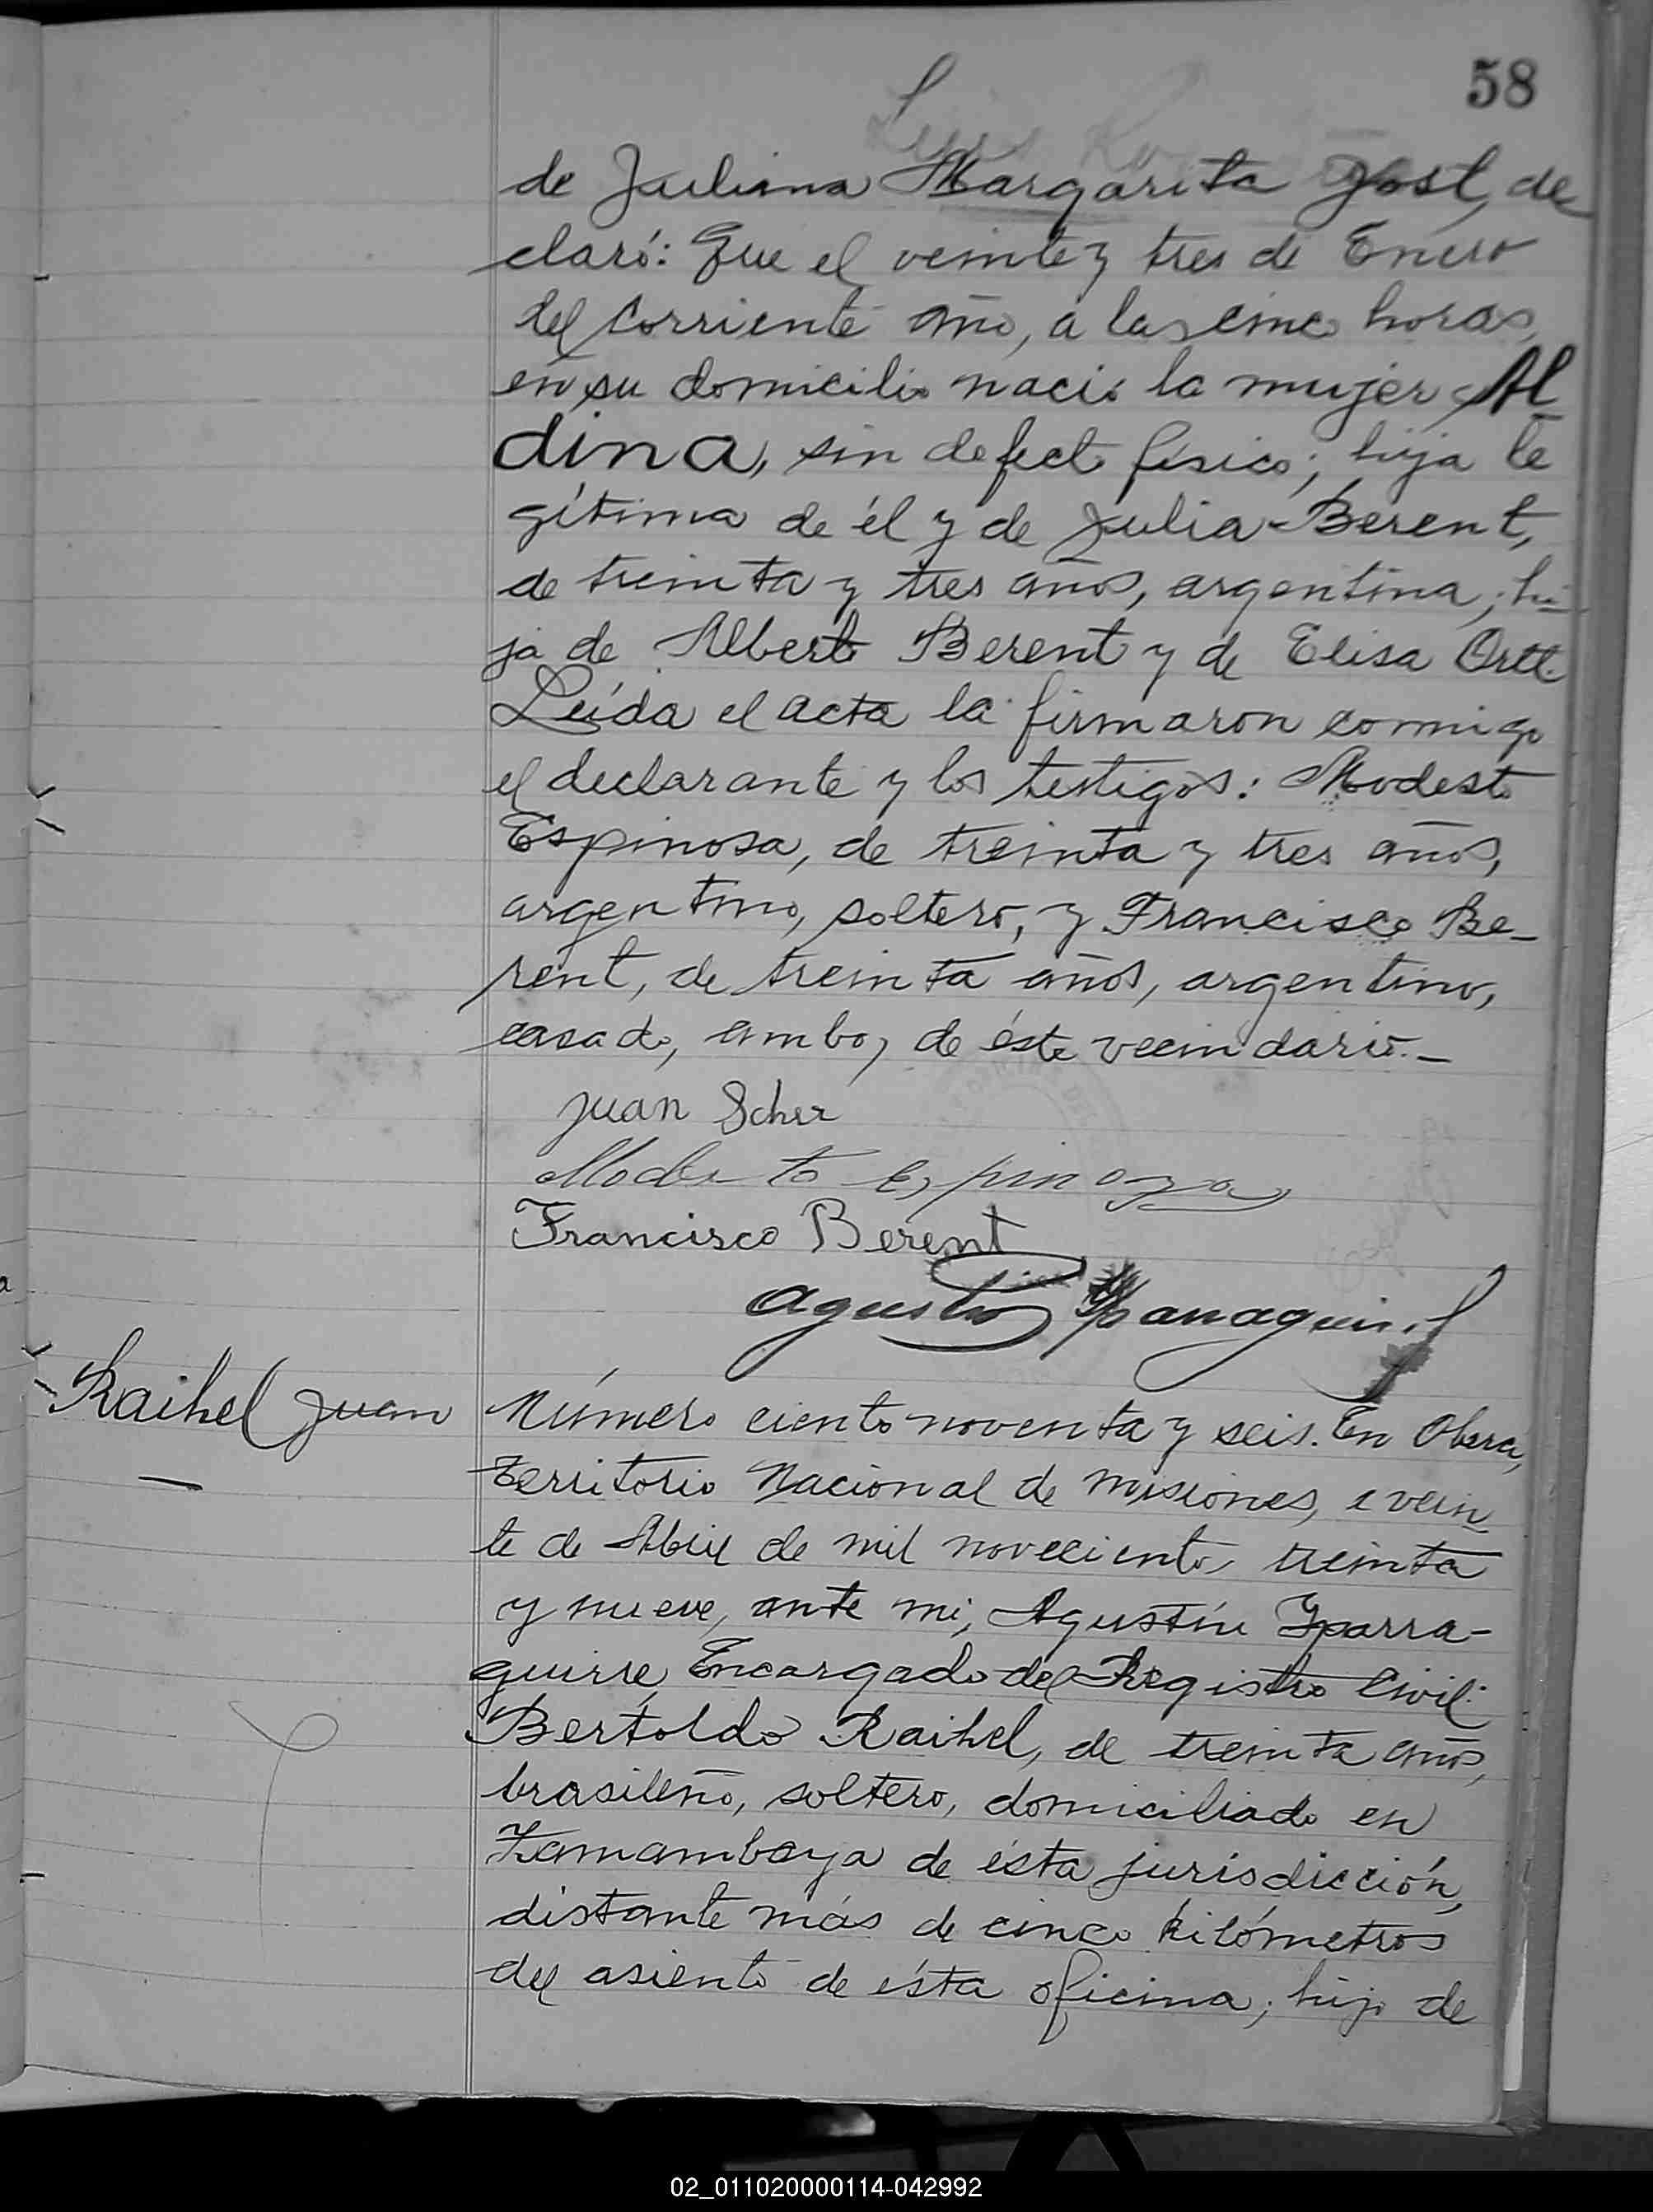 58
de Juliana Margarita Jost, de
claró: Que el veinte y tres de Enero
del corriente año, a las cinco horas,
en su domicilio nació la mujer Al
dina, sin defecto físico; hija le
gítima de él y de Julia Berent,
de treinta y tres años, argentina; hi-
ja de Alberto Berent y de Elisa Ortt.
Leída el acta la firmaron conmigo
el declarante y los testigos: Modesto
Espinosa, de treinta y tres años,
argentino, soltero, y Francisco Be-
rent, de treinta años, argentino,
casado, ambos de éste vecindario.-
Juan Scher
Modesto Espinoza
Francisco Berent
Agustín Yparraguirre
Raihel Juan
Número ciento noventa y seis. En Oberá,
Territorio Nacional de Misiones, a vein
te de Abril de mil novecientos treinta
y nueve, ante mi, Agustín Yparra-
guirre, Encargado del Registro Civil:
Bertoldo Raihel, de treinta años,
brasileño, soltero, domiciliado en
Zamambaya de ésta jurisdicción,
distante más de cinco kilómetros
del asiento de ésta oficina; hijo de
02_011020000114-042992